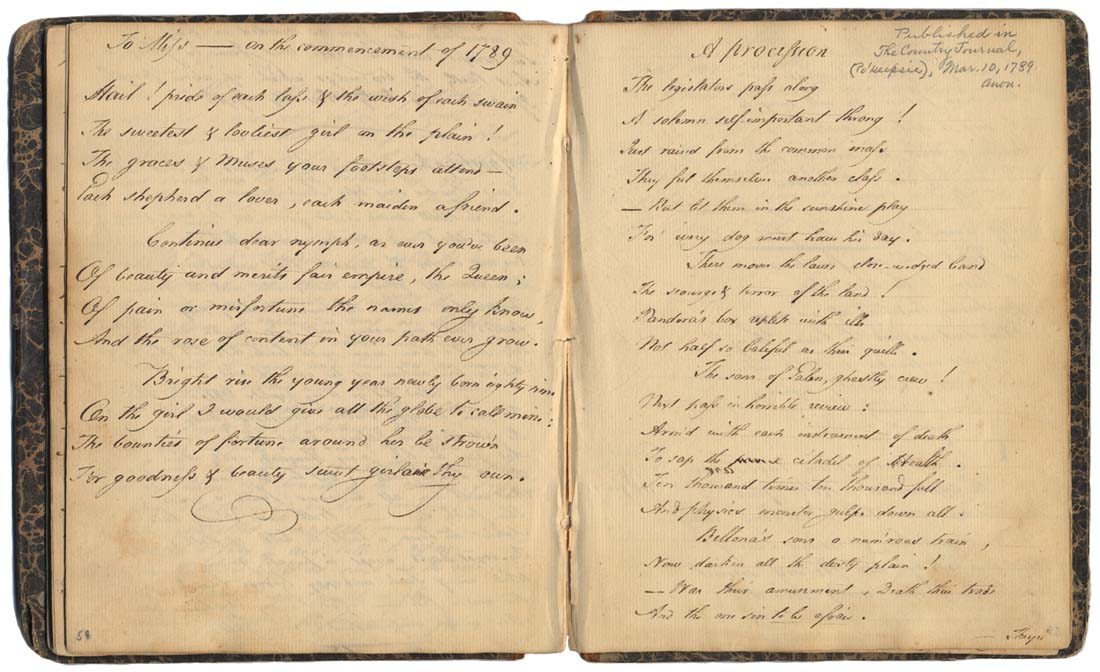 To Miss — on the commencement of 1789
Hail! pride of each lass & the wish of each swain
The sweetest & loveliest girl on the plain!
The graces & Muses your footsteps attend —
Each shepherd a lover, each maiden a friend.
Continue dear nymph, as ever you've been
Of beauty and merits fair empire, the Queen;
Of pain or misfortune the names only know,
And the rose of content in your path ever grow.
Bright rise the young year newly born eighty nine
On the girl I would give all the globe to call mine:
The bounties of fortune around her be strown
For goodness & beauty sweet girl are thy own.
58
A procession
Published in
The Country Journal,
(Po'keepsie), Mar. 10, 1789
Anon.
The legislators pass along
A solemn self-important throng!
Just raised from the common mass
They feel themselves another class.
— But let them in the sunshine play
For every dog must have his day.
There moves the laws close-wedged band
The scourge & terror of the land!
Pandora's box replete with ills
Not half so baleful as their quills.
The sons of Galen, ghastly crew!
Next pass in horrible review:
Arm'd with each instrument of death
To sap the citadel of Health.
Ten thousand times ten thousand fall
And physics monster gulps down all.
Bellona's sons a num'rous train,
Now darken all the dusty plain!
— War their amusement, Death their trade
And the one sin to be afraid.